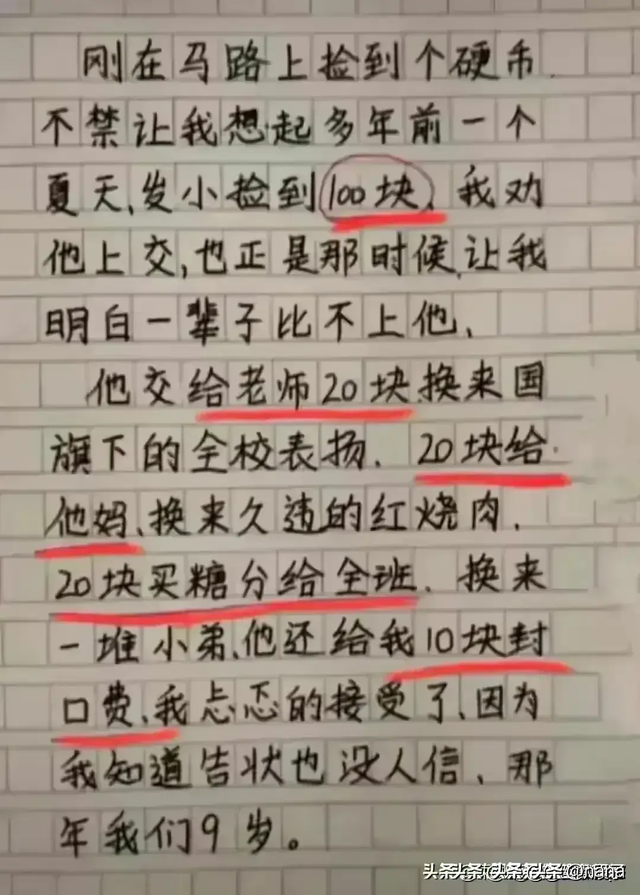 刚在马路上捡到个硬币.
不禁让我想起多年前一个
夏天,发小捡到100块、我劝
他上交,也正是那时候,让我
明白一辈子比不上他、
他交给老师20块,换来国
旗下的全校表扬、20块给
他妈、换来久违的红烧肉、
20块买糖分给全班、换来
一堆小弟、他还给我10块封
口费、我忐忑的接受了、因为
我知道告状也没人信、那
年我们9岁。